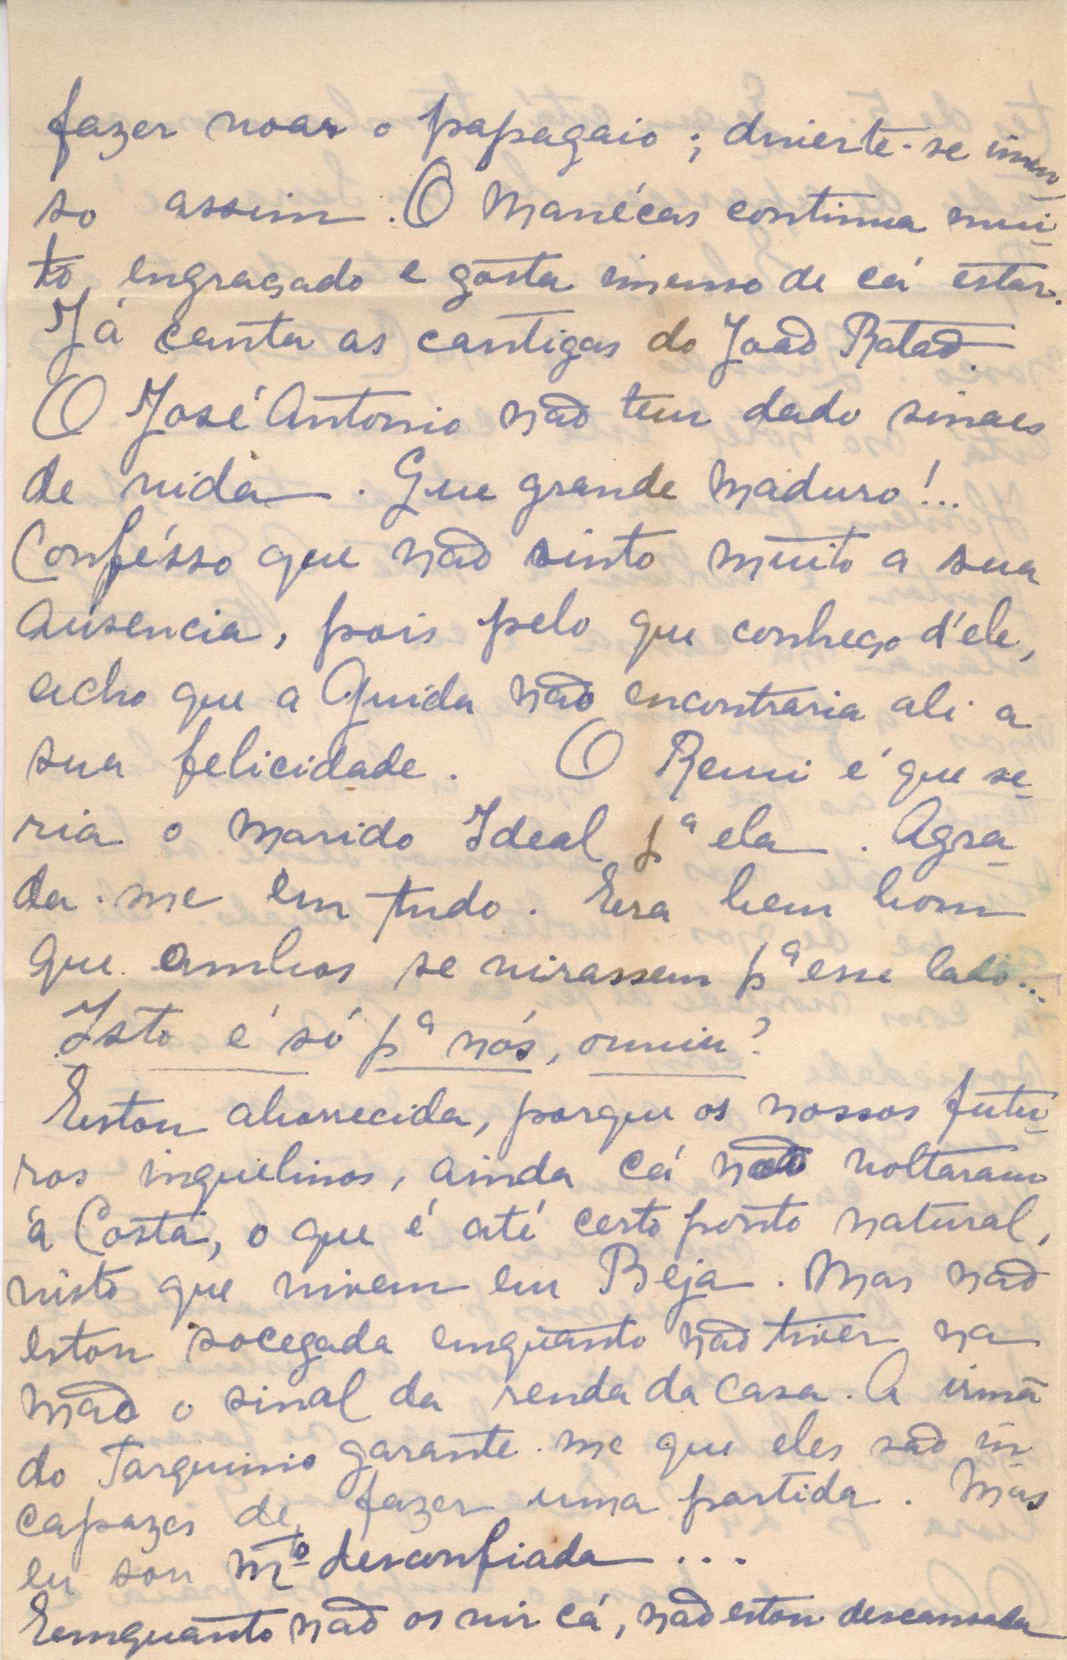 fazer voar o papagaio; divierte-se imen-
so assim. O Manécas continua mui-
to engraçado e gosta imenso de cá estar.
Já canta as cantigas do João Ratão.
O José Antonio não tem dado sinaes
de vida. Que grande maduro!..
Confésso que não sinto muito a sua
ausencia, pois pelo que conheço d'ele,
acho que a Guida não encontraria ali a
sua felicidade. O Remi é que se-
ria o marido Ideal pª ela. Agra-
da-me em tudo. Era bem bom
que ambos se virassem pª esse lado...
Isto é só pª nós, ouviu?
Estou aborrecida, porque os nossos futu-
ros inquelinos, ainda cá não voltaram
á Costa, o que é até certo ponto natural,
visto que vivem em Beja. Mas não
estou socegada emquanto não tiver na
mão o sinal da renda da casa. A irmã
do Tarquinio garante-me que eles são in
capazes de fazer uma partida. Mas
eu sou mº desconfiada...
Emquanto não os vir cá, não estou descansada